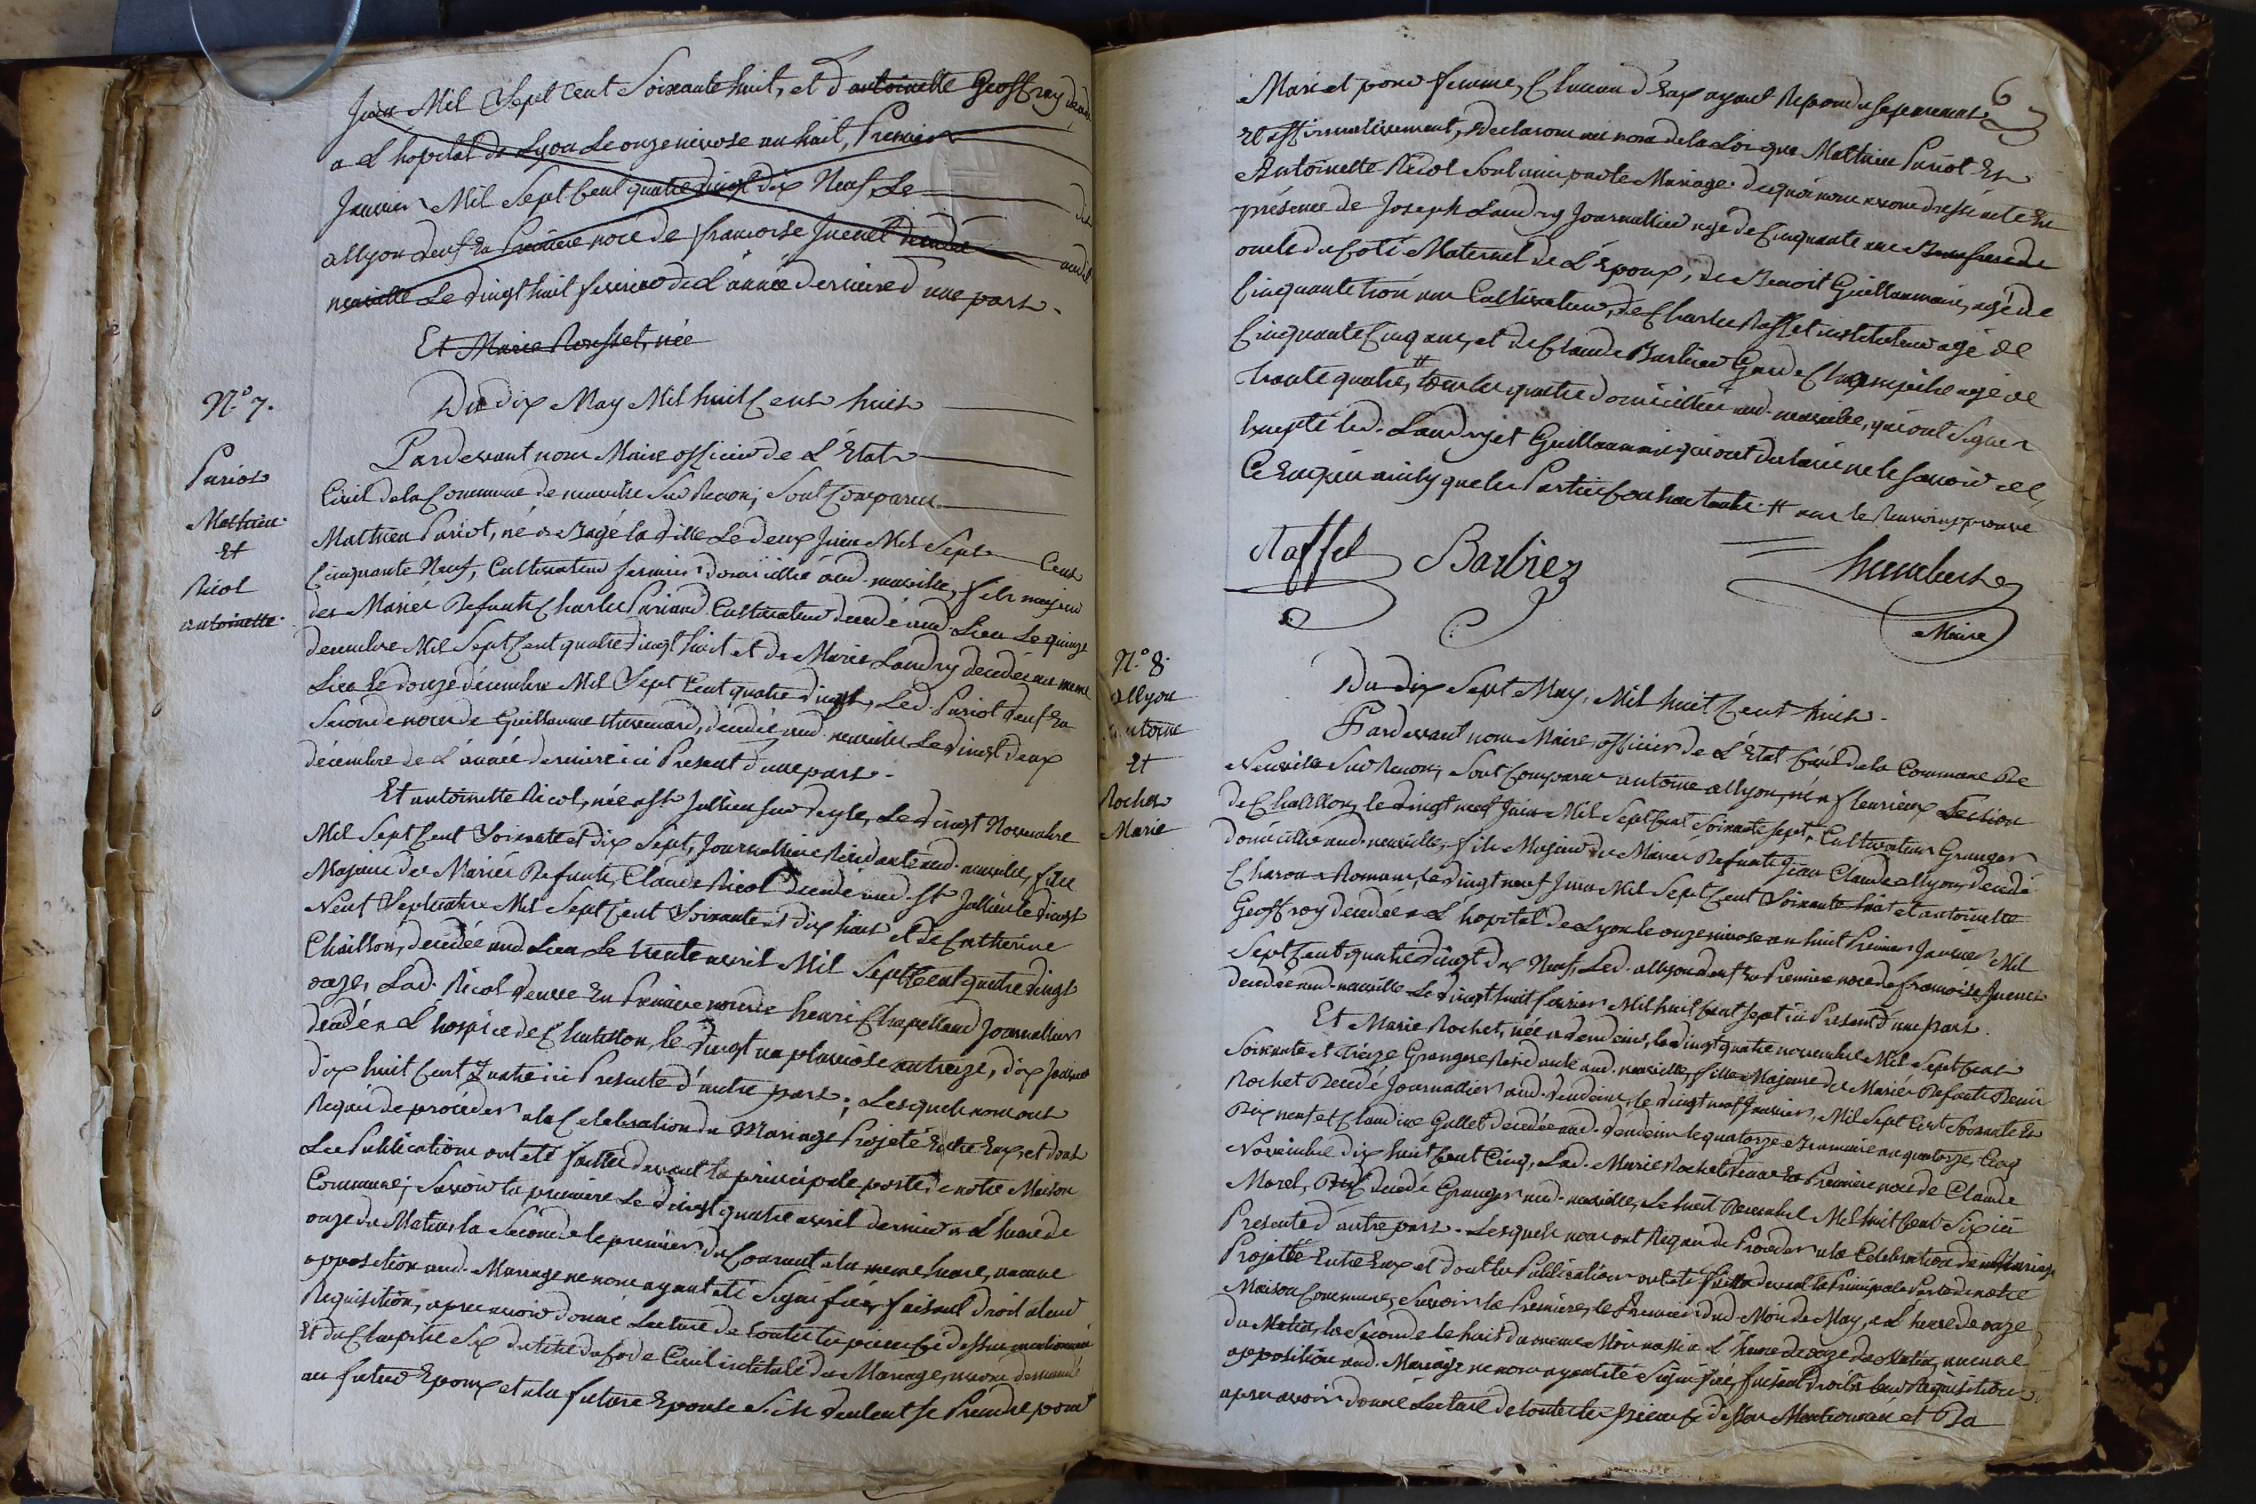 Juin Mil Sept cent Soixante huit, et d'antoinette Geoffray décédée
a L'hopital de Lyon Le onze nivose an huit, Premier
Janvier Mil Sept Cent quatre vingt dix Neuf Le dit
allyon veuf En Première noce de francoise Juenet décédée aud.
neuville Le vingt huit fevrier de L'année derniere d'une part.
Et Marie Rousset, née
N.° 7.
Puriot
Mathieu
Et
Nicol
antoinette
Du dix May Mil huit Cent huit
Pardevant nous Maire officier de L'Etat
Civil de la Commune de neuville Sur Renon; Sont Comparus
Mathieu Puriot, né à Bagé la ville Le deux Juin Mil Sept Cent
Cinquante Neuf, Cultivateur fermier domicilié aud. neuville, fils majeur
des Mariés Defunts Charles Puriaud Cultivateur decedé aud. Lieu Le quinze
decembre Mil Sept Cent quatre vingt huit et de Marie Landry decedée au meme
Lieu Le douze decembre Mil Sept Cent quatre vingt, Led. Puriot veuf En
Seconde noces de Guillaume thevenard, decedée aud. neuville Le vingt deux
décembre de L'année derniere ici Present d'une part.
Et antoinette Nicol, née a St Jullien sur veyle, Le vingt Novembre
Mil Sept Cent Soixante et dix Sept, Journalliere Residante aud. neuville, fille
Majeure des Mariés Defunts, Claude Nicol decedé aud. St Jullien le vingt
Neuf Septembre Mil Sept Cent Soixante et dix huit et de Catherine
Chaillon, decedée aud. Lieu Le trente avril Mil Sept Cent quatre vingt
onze, Lad. Nicol veuve En Premiere noce de henri Chapelland Journallier
decedé a L'hospice de Chatillon, le vingt un pluviose an treize, dix Janvier
dix huit Cent Quatre ici Presente d'autre part; Lesquels nous ont
Requis de proceder a la Celebration du Mariage Projeté Entre Eux, et dont
Les Publications ont eté faites devant la principale porte de notre Maison
Commune; Savoir la premiere Le vingt quatre avril dernier a L'heure de
onze du Matin, la Seconde le premier du Courant a la meme heure, aucune
opposition aud. Mariage ne nous ayant eté Signifiée, faisant droit a leur
Requisition, apres avoir donné Lecture de toutes les pieces Ci dessus mentionnées
Et du Chapitre Six du titre du Code Civil intitulé du Mariage, avons demandé
au futur Epoux et a la future Epouse S'ils veulent Se Prendre pour
6
Mari et pour femme, Chacun d'Eux ayant Repondu Separement
Et affirmativement, declarons au nom de la Loi que Mathieu Puriot Et
Antoinette Nicol Sont unis par le Mariage. de quoi nous avons dressé acte En
présence de Joseph Landry Journallier agé de Cinquante ans Beaufrere de
oncle du Coté Maternel de L'Epoux, de Benoit Guillaumain, agé de
Cinquante trois ans Cultivateur, de Charles Raffet instituteur agé de
Cinquante Cinq ans, et de Claude Barbier Garde Champêtre agé de
trente quatre, # tous les quatre domiciliés aud. neuville, qui ont Signé
Excepté led. Landry et Guillaumain qui ont declaré ne le Savoir de
Ce Enquis ainsy que les Parties Contractantes. # ans le Renvoi approuvé
Raffet Barbier humbert
Maire
N.° 8.
allyon
antoine
Et
Rochet
Marie
Du dix Sept May, Mil huit Cent huit.
Pardevant nous Maire, officier de L'Etat Civil de la Commune De
Neuville Sur Renon, Sont Comparus antoine allyon, né a fleurieux Section
de Chatillon, le vingt neuf Juin Mil Sept Cent Soixante Sept, Cultivateur Granger
domicilié aud. neuville, fils Majeur des Mariés Defunts Jean Claude allyon, decedé
a Romans, le vingt neuf Juin Mil Sept Cent Soixante huit et antoinette
Geoffray decedée a L'hopital de Lyon le onze nivose an huit Premier Janvier Mil
Sept Cent quatre vingt dix Neuf, Led. allyon veuf En Premiere noce de francoise Juenet
decedée aud. neuville Le vingt huit fevrier Mil huit Cent Sept ici Present d'une part.
Et Marie Rochet, née a Vendeins, le vingt quatre novembre Mil Sept Cent
Soixante et Treize Grangere, Residante aud. neuville, fille Majeure des Mariés Defunts Denis
Rochet Decedé Journallier aud. Vendeins, le vingt neuf Janvier, Mil Sept Cent Soixante Et
Dix neuf et Claudine Gallet decedée aud. Vendeins le quatorze Brumaire an quatorze, Cinq
Novembre dix huit Cent Cinq, Lad. Marie Rochet veuve En Premiere noce de Claude
Morel, decedé Granger aud. neuville, Le huit Decembre Mil huit Cent Six ici
Presente d'autre part. Lesquels nous ont Requis de Proceder a la Celebration du Mariage
Projetté Entre Eux et dont les Publications ont eté faittes devant la Principale Porte de notre
Maison Commune, Savoir la Premiere, le Premier dud. Mois de May, a L'heure de onze
du Matin, la Seconde le huit du meme Mois aussi a L'heure de onze du Matin, aucune
opposition aud. Mariage ne nous ayant eté Signifié, faisant droit a leur Requisition
apres avoir donné Lecture de toutes les Pieces Ci dessus Mentionnées et Du